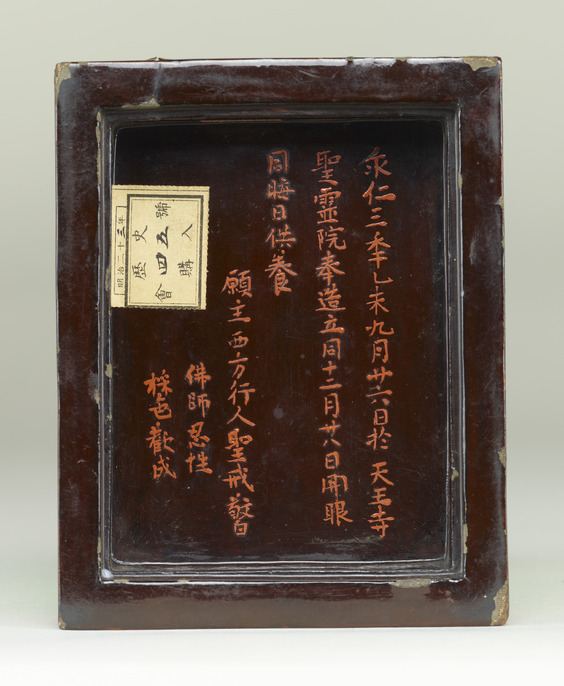 永仁三季乙未九月廿六日於天王寺
聖靈院奉造立同十二月廿八日開眼
同晦日供養
願主西方行人聖戒敬白
佛師忍性
採色歡成
明治二十三年
歷史
會四五號
購入